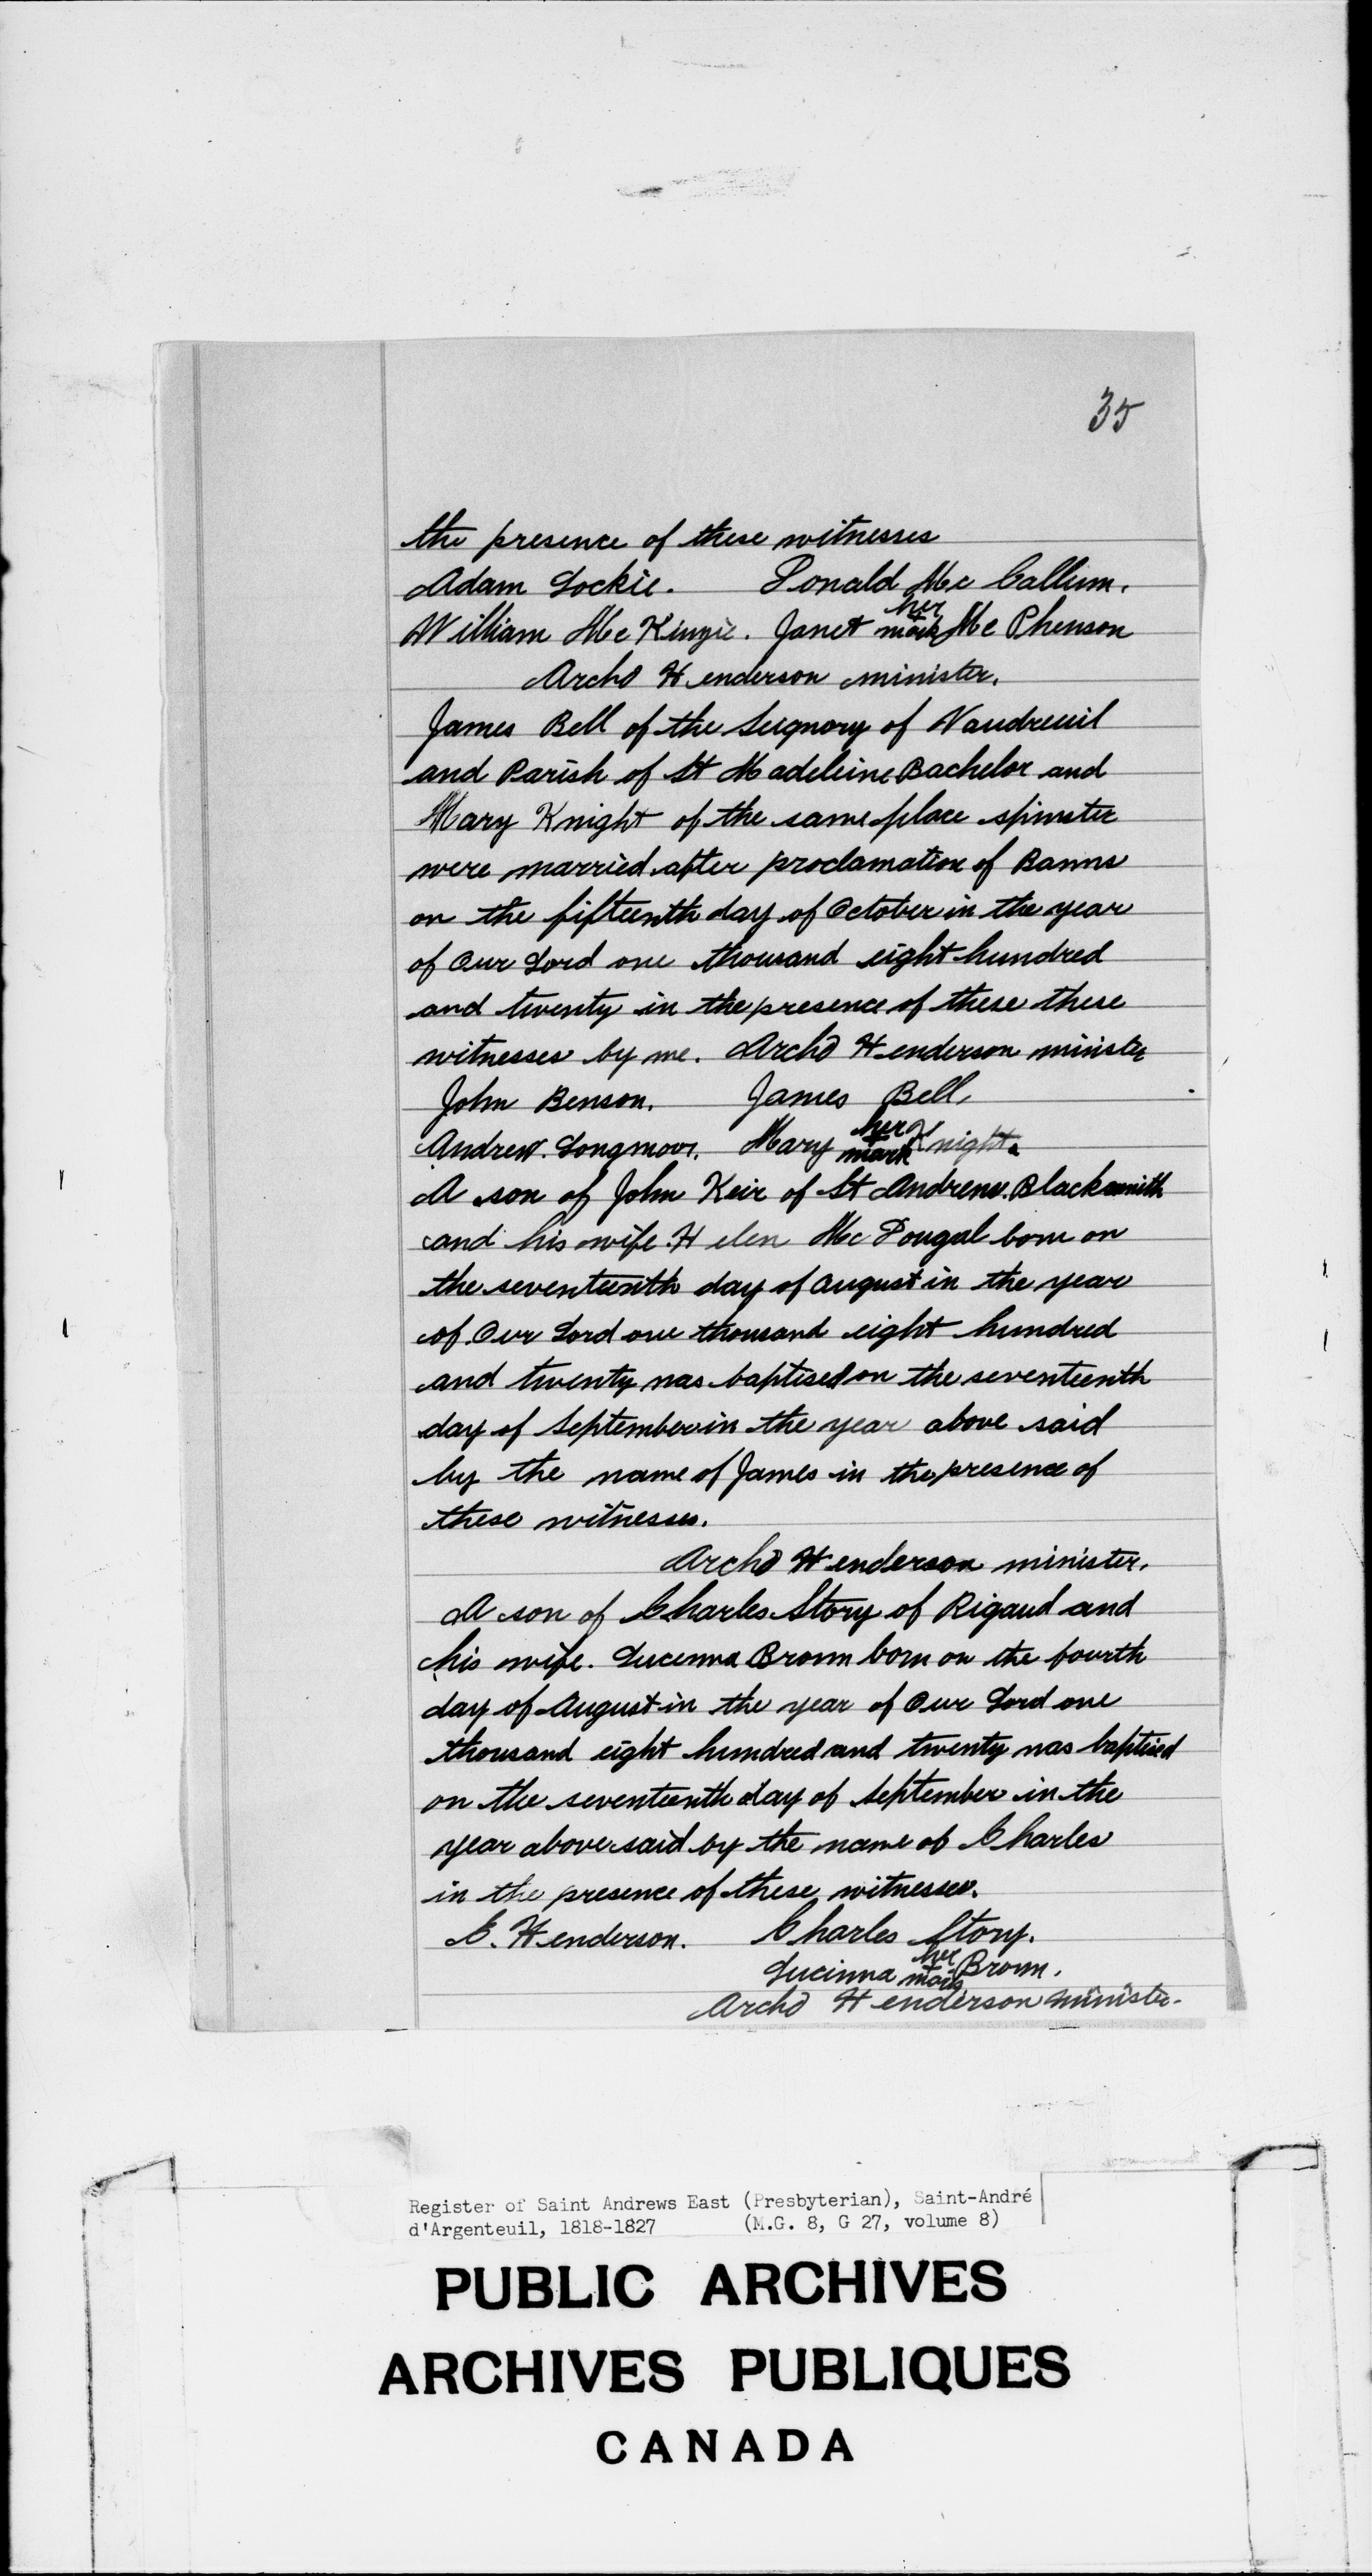 35
the presence of these witnesses
Adam Lockie. Donald Mc Callum.
William Mc Kinzie. Janet her + mark Mc Phenson
Archd Henderson minister.
James Bell of the Seignory of Vaudreuil
and Parish of St Madeleine Bachelor and
Mary Knight of the same place spinster
were married after proclamation of Banns
on the fifteenth day of October in the year
of Our Lord one thousand eight hundred
and twenty in the presence of these these
witnesses by me. Archd Henderson minister
John Benson. James Bell,
Andrew. Longmoor. Mary her + mark Knight.
A son of John Keir of St Andrews. Blacksmith
and his wife Helen Mc Dougal born on
the seventeenth day of August in the year
of Our Lord one thousand eight hundred
and twenty was baptised on the seventeenth
day of September in the year above said
by the name of James in the presence of
these witnesses.
Archd Henderson minister.
A son of Charles Story of Rigaud and
his wife. Lucenna Brown born on the fourth
day of August in the year of Our Lord one
thousand eight hundred and twenty was baptised
on the seventeenth day of September in the
year above said by the name of Charles
in the presence of these witnesses.
C. Henderson. Charles Story.
Lucinna her + mark Brown.
Archd Henderson minister.
Register of Saint Andrews East (Presbyterian), Saint-André
d'Argenteuil, 1818-1827 (M.G. 8, G 27, volume 8)
PUBLIC ARCHIVES
ARCHIVES PUBLIQUES
CANADA